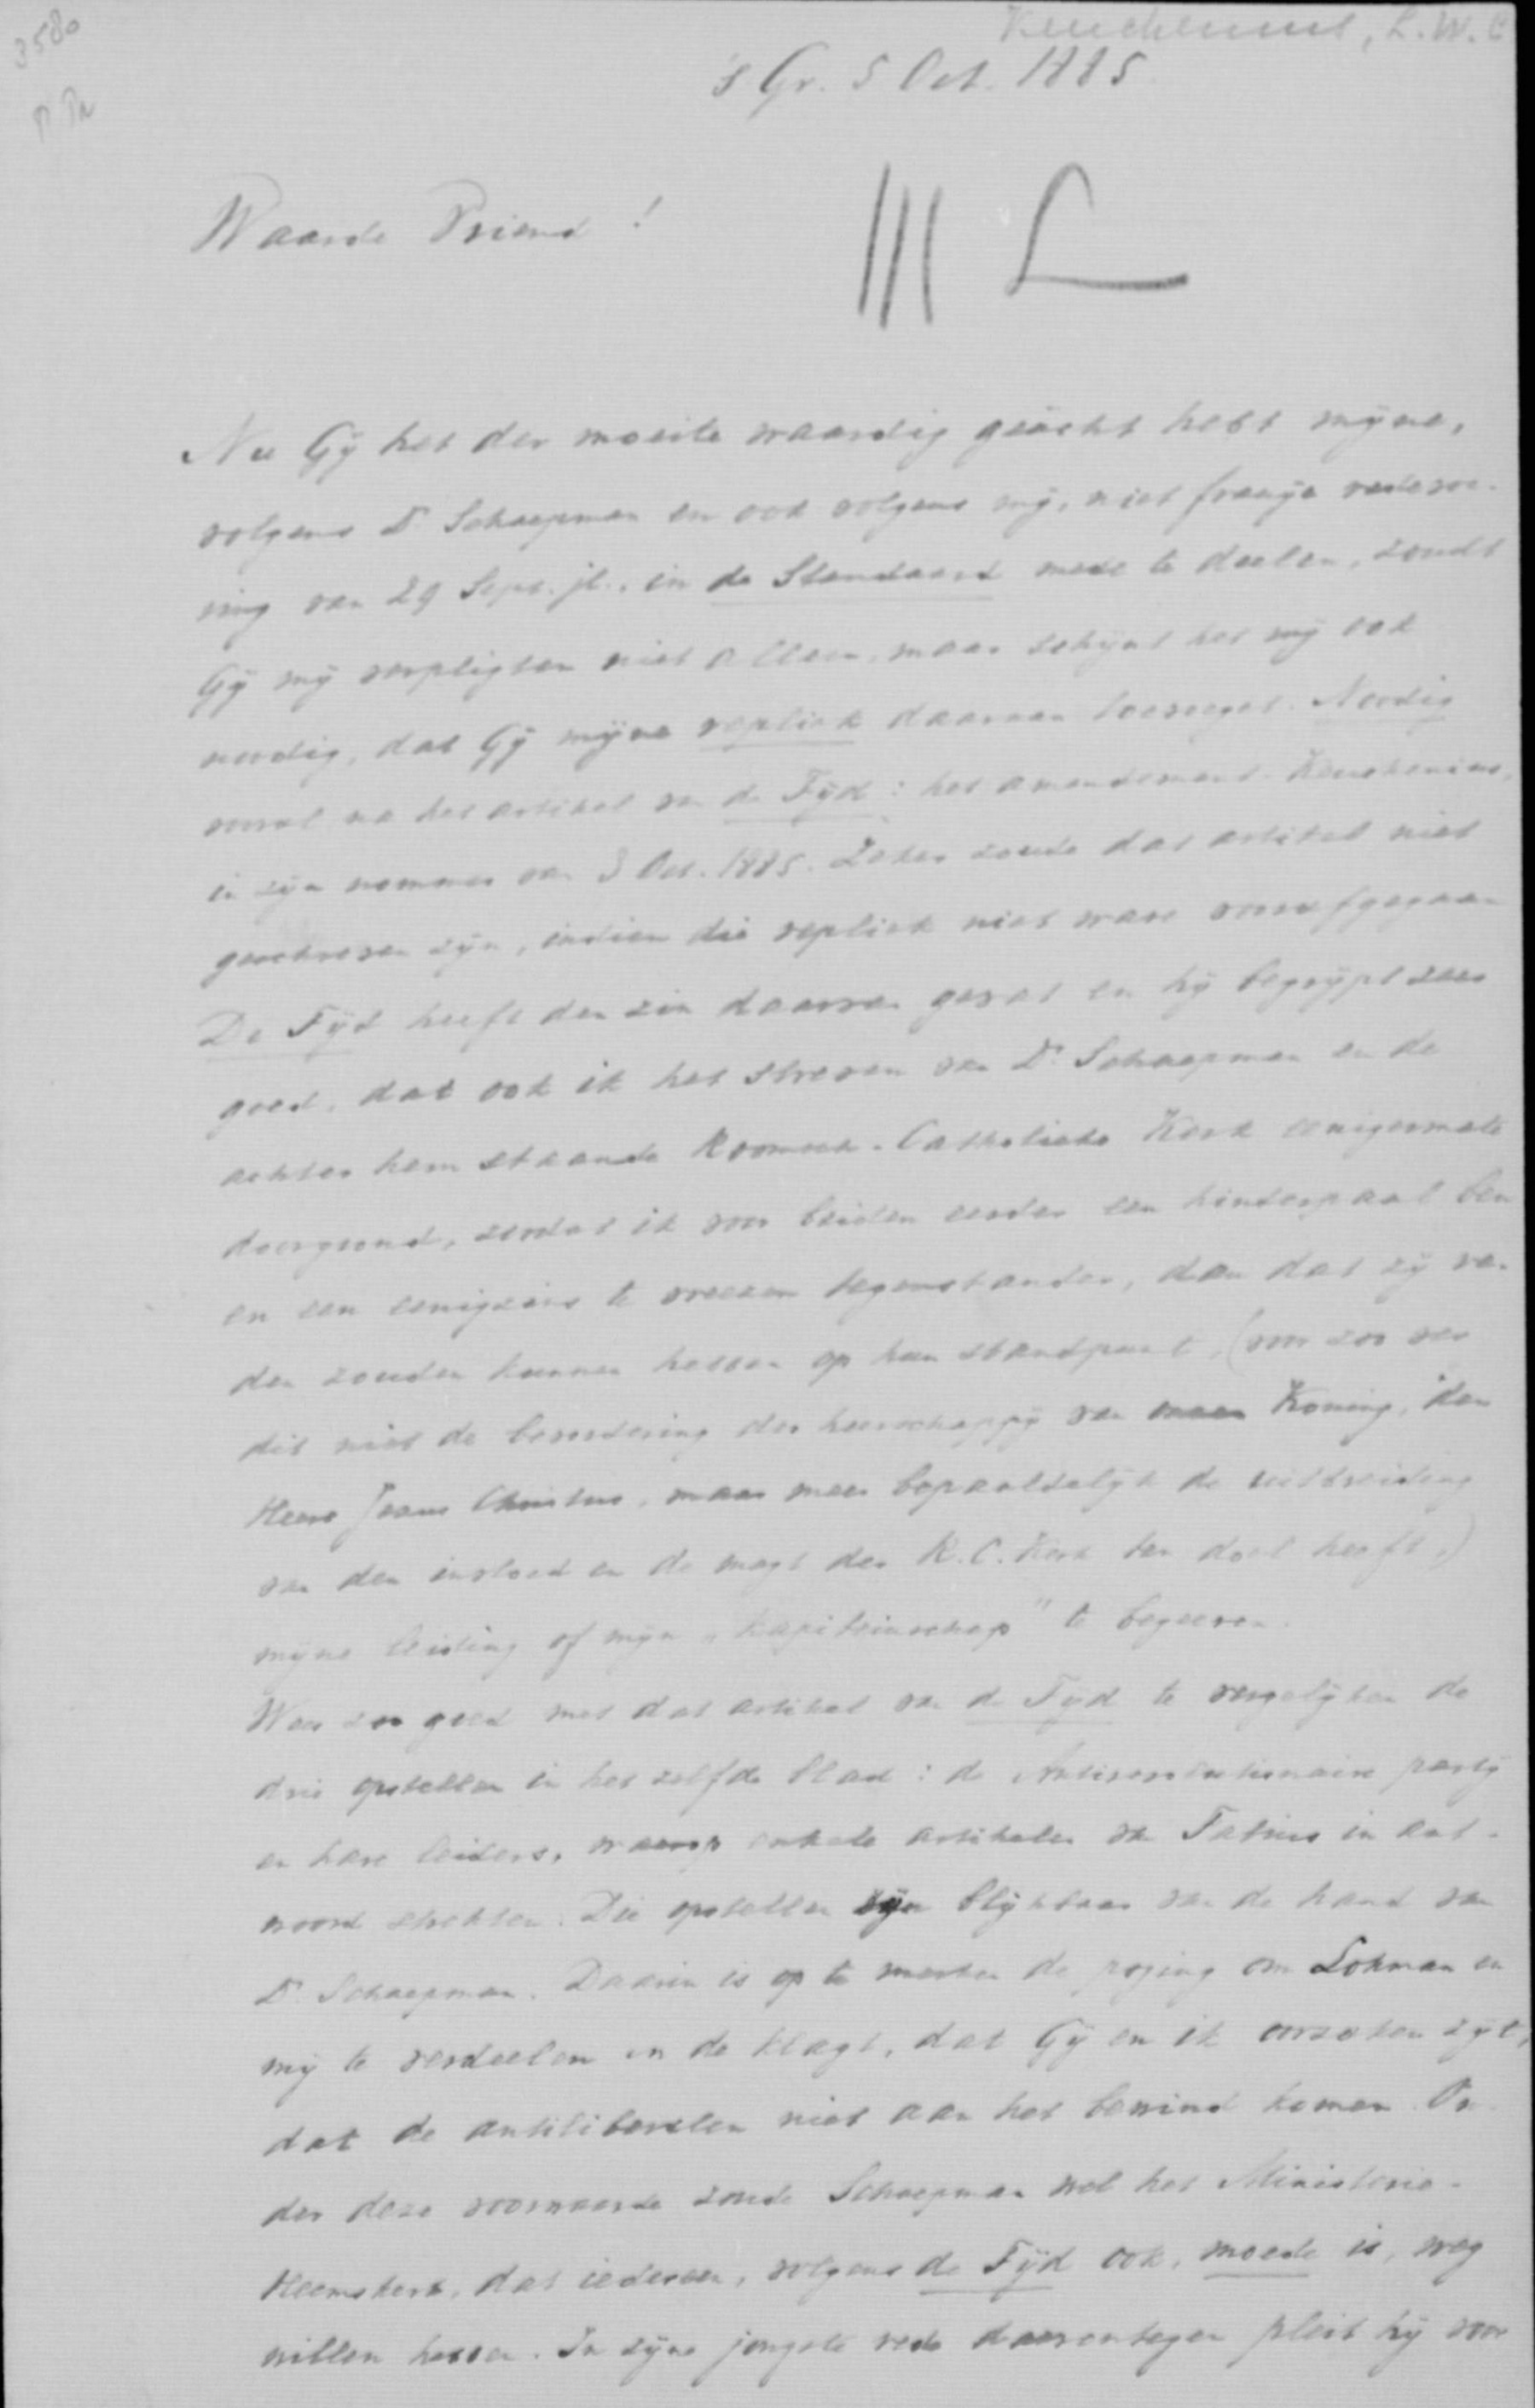 3580
Keuchenius, L.W.C
's Gr. 5 Oct. 1885
Waarde Vriend!
III L
Nu Gÿ het der moeite waardig geacht hebt mÿne,
volgens Dr Schaepman en ook volgens mÿ, niet fraaÿe redevoe-
ring van 29 Sept. jl., in de Standaard mede te deelen, zoudt
Gÿ mÿ verpligten niet alleen, maar schÿnt het mÿ ook
noodig, dat Gÿ mÿne repliek daaraan toevoeget. Noodig
vooral na het artikel van de Tÿd: het amendement-Keuchenius,
in zÿn nommer van 3 Oct. 1885. Zeker zoude dat artikel niet
geschreven zÿn, indien die repliek niet ware voorafgegaan
De Tÿd heeft den zin daarvan gevat en hÿ begrÿpt zeer
goed, dat ook ik het streven van Dr Schaepman en de
achter hem staande Roomsch-Catholieke Kerk eenigermate
doorgrond, zoodat ik voor beiden eerder een hinderpaal ben
en een eenigzins te vreezen tegenstander, dan dat zÿ re-
den zouden kunnen hebben op hun standpunt, (voor zoo ver
dit niet de bevordering der heerschappÿ van Koning, den
Heere Jezus Christus, maar meer bepaaldelÿk de uitbreiding
van den invloed en de magt der R.C. Kerk ten doel heeft,)
mÿne leiding of mÿn „kapiteinschap" te begeeren.
Wees zoo goed met dat artikel van de Tÿd te vergelÿken de
drie opstellen in het zelfde blad: de Antirevolutionaire partÿ
en hare leiders, waarop enkele artikelen van in ant-
woord strekten. Die opstellen zÿn blÿkbaar van de hand van
Dr Schaepman. Daarin is op te merken de poging om Lohman en
mÿ te verdeelen en de klagt, dat Gÿ en ik oorzaken zÿt,
dat de antiliberalen niet aan het bewind komen. On-
der deze voorwaarde zoude Schaepman wel het Ministerie-
Heemskerk, dat iedereen, volgens de Tÿd ook, moede is, weg
willen hebben. In zÿne jongste rede daarentegen pleit hÿ voor